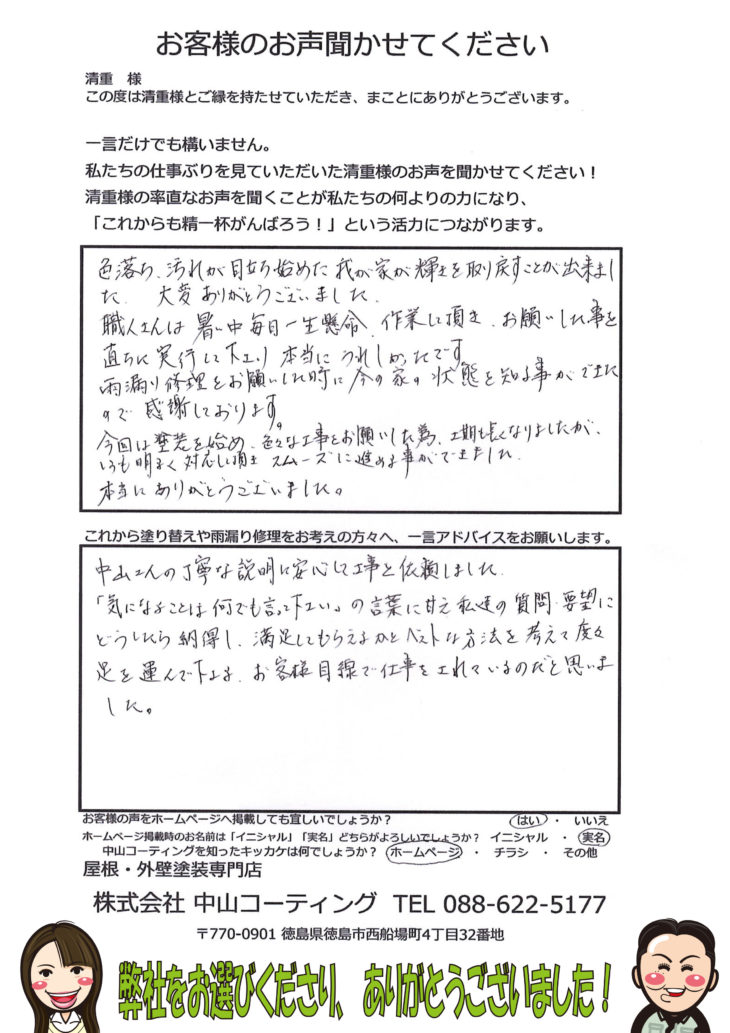 お客様のお声聞かせてください
清重　様
この度は清重様とご縁を持たせていただき、まことにありがとうございます。
一言だけでも構いません。
私たちの仕事ぶりを見ていただいた清重様のお声を聞かせてください！
清重様の率直なお声を聞くことが私たちの何よりの力になり、
「これからも精一杯がんばろう！」という活力につながります。
色落ち、汚れが目立ち始めた我が家が輝きを取り戻すことが出来まし
た。大変ありがとうございました。
職人さんは暑い中毎日一生懸命、作業して頂き、お願いした事を
直ちに実行して下さり本当にうれしかったです。
雨漏り修理をお願いした時に今の家の状態を知る事ができた
ので感謝しております。
今回は塗装を始め、色々な工事をお願いした為、工期も長くなりましたが、
いつも明るく対応して頂きスムーズに進める事ができました。
本当にありがとうございました。
これから塗り替えや雨漏り修理をお考えの方々へ、一言アドバイスをお願いします。
中山さんの丁寧な説明に安心して工事を依頼しました。
「気になることは何でも言って下さい。」の言葉に甘え私達の質問・要望に
どうしたら納得し、満足してもらえるかとベストな方法を考えて度々
足を運んで下さる、お客様目線で仕事をされているのだと思いま
した。
お客様の声をホームページへ掲載しても宜しいでしょうか？　はい　・　いいえ
ホームページ掲載時のお名前は「イニシャル」「実名」どちらがよろしいでしょうか？　イニシャル　・　実名
中山コーティングを知ったキッカケは何でしょうか？　ホームページ　・　チラシ　・　その他
屋根・外壁塗装専門店
株式会社 中山コーティング　TEL 088-622-5177
〒770-0901 徳島県徳島市西船場町4丁目32番地
弊社をお選びくださり、ありがとうございました！